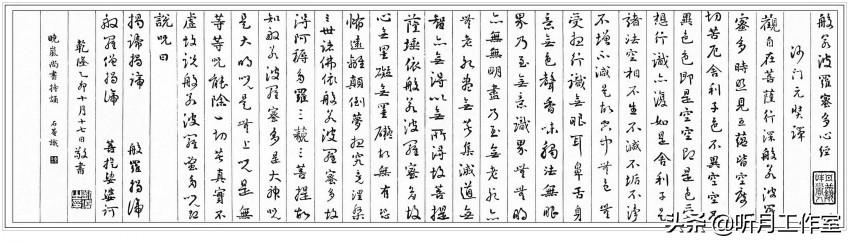 般若波羅蜜多心經
沙門元奘譯
觀自在菩薩行深般若波羅
蜜多時照見五蘊皆空度一
切苦厄舍利子色不異空空不
異色色即是空空即是色受
想行識亦復如是舍利子是
諸法空相不生不滅不垢不淨
不增不減是故空中無色無
受想行識無眼耳鼻舌身
意無色聲香味觸法無眼
界乃至無意識界無無明
亦無無明盡乃至無老死亦
無老死盡無苦集滅道無
智亦無得以無所得故菩提
薩埵依般若波羅蜜多故
心無罣礙無罣礙故無有恐
怖遠離顛倒夢想究竟涅槃
三世諸佛依般若波羅蜜多故
得阿耨多羅三藐三菩提故
知般若波羅蜜多是大神咒
是大明咒是無上咒是無
等等咒能除一切苦真實不
虛故說般若波羅蜜多咒即
說咒曰
揭諦揭諦 般羅揭諦
般羅僧揭諦 菩提薩婆訶
乾隆乙卯十月十七日敬書
晚巖尚書持誦 石菴識
头条 @听月工作室